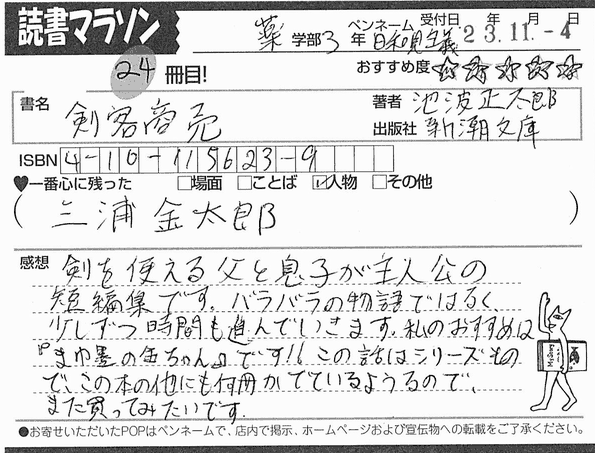 読書マラソン
薬 学部 3 年 ペンネーム 日和見主義 受付日 23.11.-4 年 月 日
24 冊目! おすすめ度 ☆☆☆☆☆
書名 剣客商売 著者 池波正太郎
出版社 新潮文庫
ISBN 4-10-115623-9
♥一番心に残った □場面 □ことば ☑人物 □その他
( 三浦金太郎 )
感想 剣を使える父と息子が主人公の
短編集です。バラバラの物語ではなく
少しずつ時間も進んでいきます。私のおすすめは
『まゆ墨の金ちゃん』です!! この話はシリーズもの
で、この本の他にも何冊かでているようなので、
また買ってみたいです。
●お寄せいただいたPOPはペンネームで、店内で掲示、ホームページおよび宣伝物への転載をご了承ください。